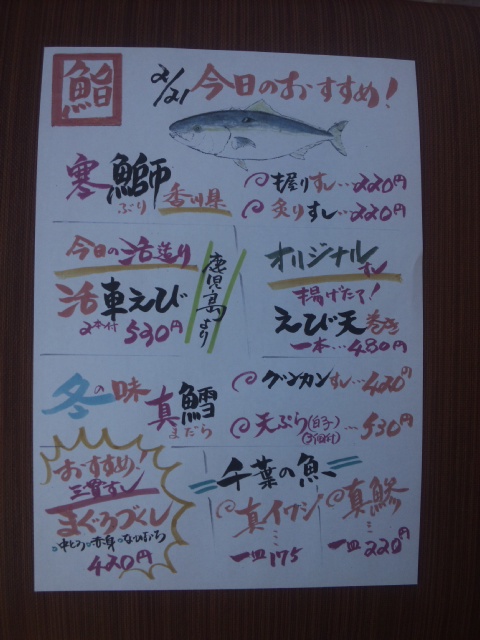 鮨
2/21 今日のおすすめ!
寒鰤
ぶり
香川県
握りすし…220円
炙りすし…220円
今日の活造り
活車えび
2本付 530円
鹿児島より
オリジナルすし
揚げたて!
えび天巻き
一本…480円
冬の味
真鱈
まだら
グンカンすし…420円
天ぷら(白子)…530円
(3個付)
おすすめ!
三貫すし
まぐろづくし
中とろ 赤身 ねぎとろ
420円
千葉の魚
真イワシ
一皿175
真鯵
一皿220円